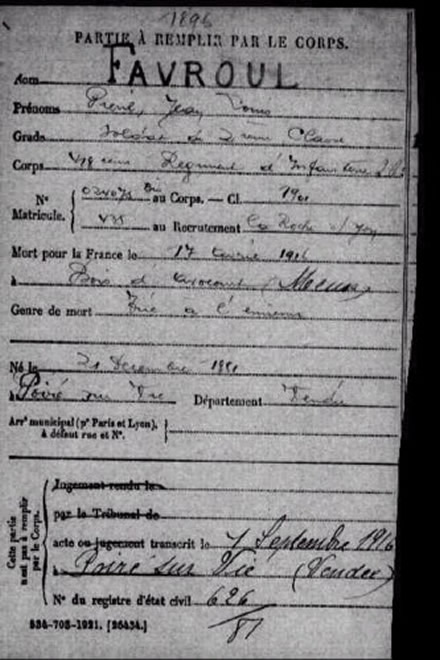 1896
PARTIE À REMPLIR PAR LE CORPS.
Nom FAVROUL
Prénoms Pierre, Jean Louis
Grade Soldat de 2ème Classe
Corps 418 eme Regiment d'Infanterie
Nº Matricule. 024075 bis au Corps. — Cl. 1901
435 au Recrutement La Roche s/ Yon
Mort pour la France le 17 avril 1916
à Bois d'avocourt (Meuse)
Genre de mort Tué a l'ennemi
Né le 21 Decembre 1881
à Poiré sur Vie Département Vendée
Arrᵗ municipal (pʳ Paris et Lyon), à défaut rue et Nº.
Cette partie n'est pas à remplir par le Corps.
Jugement rendu le
par le Tribunal de
acte ou jugement transcrit le 7 Septembre 1916
à Poiré sur Vie (Vendée)
Nº du registre d'état civil 626/81
534-708-1921. [26434.]